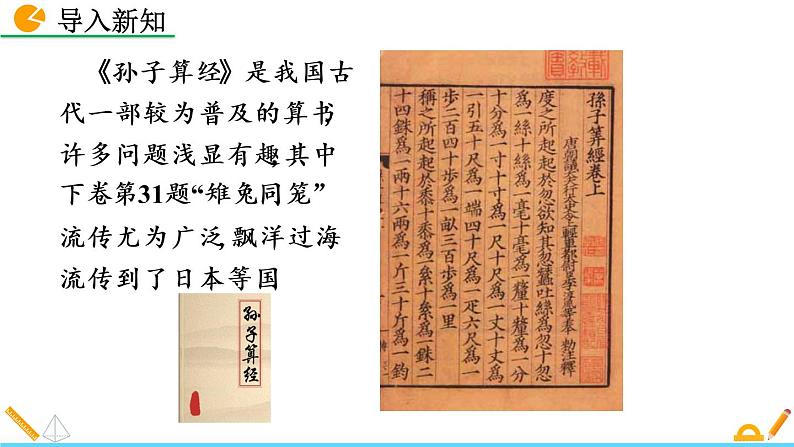 导入新知
《孙子算经》是我国古
代一部较为普及的算书,
许多问题浅显有趣,其中
下卷第31题“雉兔同笼”
流传尤为广泛,飘洋过海
流传到了日本等国
孙子算经
孫子算經卷上
度之所起起於忽欲知其忽蠶吐絲為忽十忽
為一絲十絲為一毫十毫為一釐十釐為一分
十分為一寸十寸為一尺十尺為一丈十丈為
一引五十尺為一端四十尺為一疋六尺為一
步二百四十步為一畝三百步為一里
稱之所起起於黍十黍為一絫十絫為一銖二
十四銖為一兩十六兩為一斤三十斤為一鈞